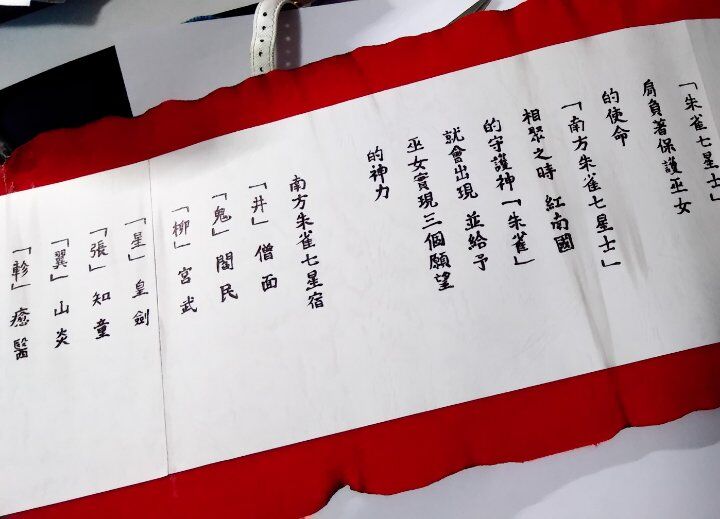 「朱雀七星士」
肩負著保護巫女
的使命
「南方朱雀七星士」
相聚之時 紅南國
的守護神「朱雀」
就會出現 並給予
巫女實現三個願望
的神力
南方朱雀七星宿
「井」僧面
「鬼」閻民
「柳」宮武
「星」皇劍
「張」知童
「翼」山炎
「軫」癒醫